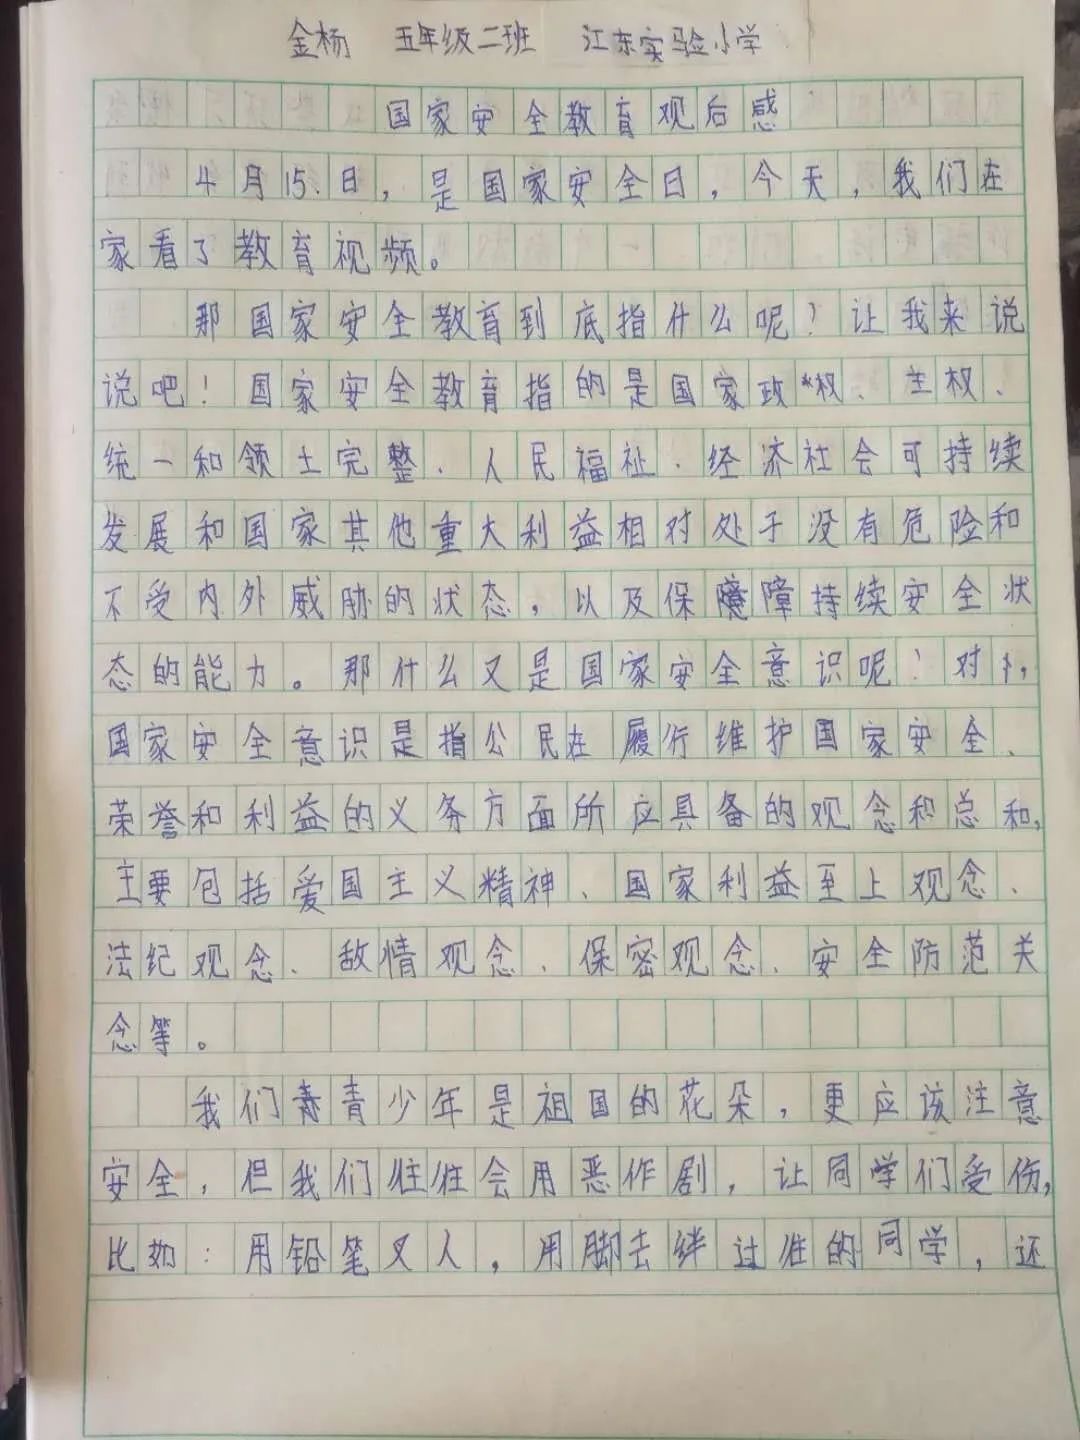 金杨 五年级二班 江东实验小学
国家安全教育观后感
4月15日，是国家安全日，今天，我们在
家看了教育视频。
那国家安全教育到底指什么呢？让我来说
说吧！国家安全教育指的是国家政权、主权、
统一和领土完整、人民福祉、经济社会可持续
发展和国家其他重大利益相对处于没有危险和
不受内外威胁的状态，以及保障持续安全状
态的能力。那什么又是国家安全意识呢？对，
国家安全意识是指公民在履行维护国家安全、
荣誉和利益的义务方面所应具备的观念和总和，
主要包括爱国主义精神、国家利益至上观念、
法纪观念、敌情观念、保密观念、安全防范关
念等。
我们青少年是祖国的花朵，更应该注意
安全，但我们往往会用恶作剧，让同学们受伤，
比如：用铅笔叉人，用脚去绊过往的同学，还